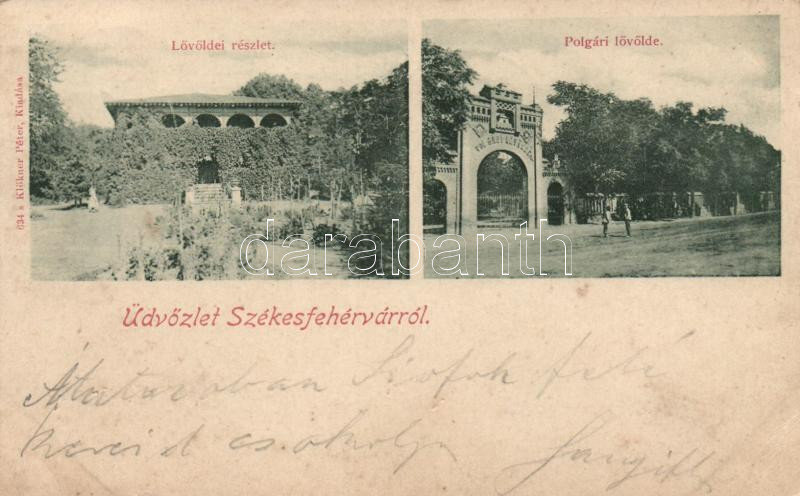 Lővőldei részlet.
Polgári lővőlde.
634 s Klökner Péter, Kiadása
darabanth
Üdvőzlet Székesfehérvárról.
Átutazóban Siófok felé
kezeid csókolja